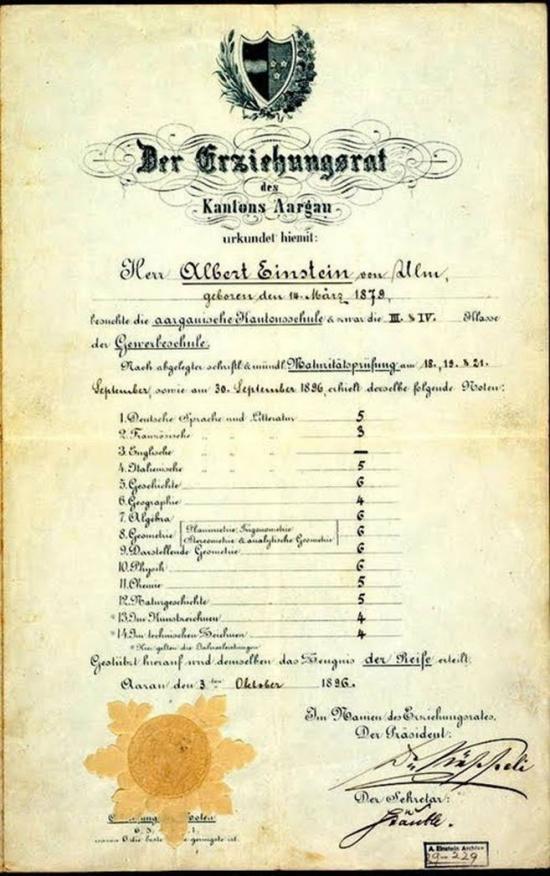 Der Erziehungsrat
des
Kantons Aargau
urkundet hiemit:
Herr Albert Einstein von Ulm,
geboren den 14. März 1879,
besuchte die aargauische Kantonsschule & zwar die III. & IV. Klasse
der Gewerbeschule.
Nach abgelegter schriftl. & mündl. Maturitätsprüfung am 18., 19. & 21.
September, sowie am 30. September 1896, erhielt derselbe folgende Noten:
1. Deutsche Sprache und Litteratur 5
2. Französische " " " 3
3. Englische " " " —
4. Italienische " " " 5
5. Geschichte 6
6. Geographie 4
7. Algebra 6
8. Geometrie Planimetrie, Trigonometrie 6
Stereometrie & analytische Geometrie
9. Darstellende Geometrie 6
10. Physik 6
11. Chemie 5
12. Naturgeschichte 5
*13. Im Kunstzeichnen 4
*14. Im technischen Zeichnen 4
*Hier gelten die Jahresleistungen
Gestützt hierauf wird demselben das Zeugnis der Reife erteilt.
Aarau den 3ten Oktober 1896.
Im Namen des Erziehungsrates,
Der Präsident:
Der Sekretär:
Noten
6. 5. 1.
wovon 6 die beste geringste ist.
A. Einstein Archive
29-229